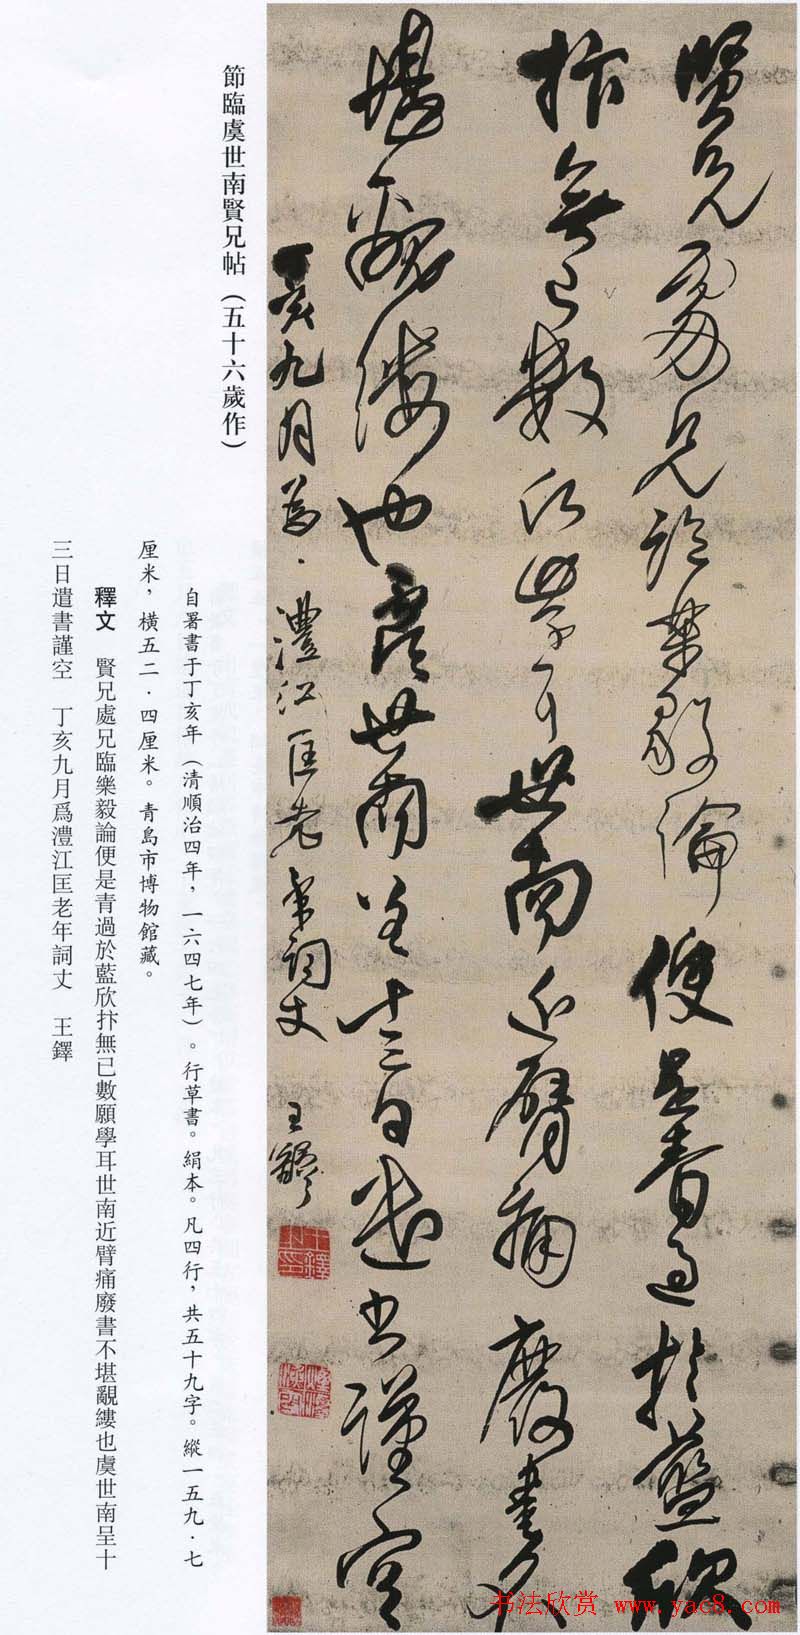 賢兄處兄臨樂毅論便是青過於藍欣
抃無已數願學耳世南近臂痛廢書不
堪覼縷也虞世南呈十三日遣書謹空
丁亥九月為澧江匡老年詞丈 王鐸
節臨虞世南賢兄帖（五十六歲作）
自署書于丁亥年（清順治四年，一六四七年）。行草書。絹本。凡四行，共五十九字。縱一五九·七
厘米，橫五二·四厘米。青島市博物館藏。
釋文 賢兄處兄臨樂毅論便是青過於藍欣抃無已數願學耳世南近臂痛廢書不堪覼縷也虞世南呈十
三日遣書謹空 丁亥九月爲澧江匡老年詞丈 王鐸
书法欣赏 www.yac8.com